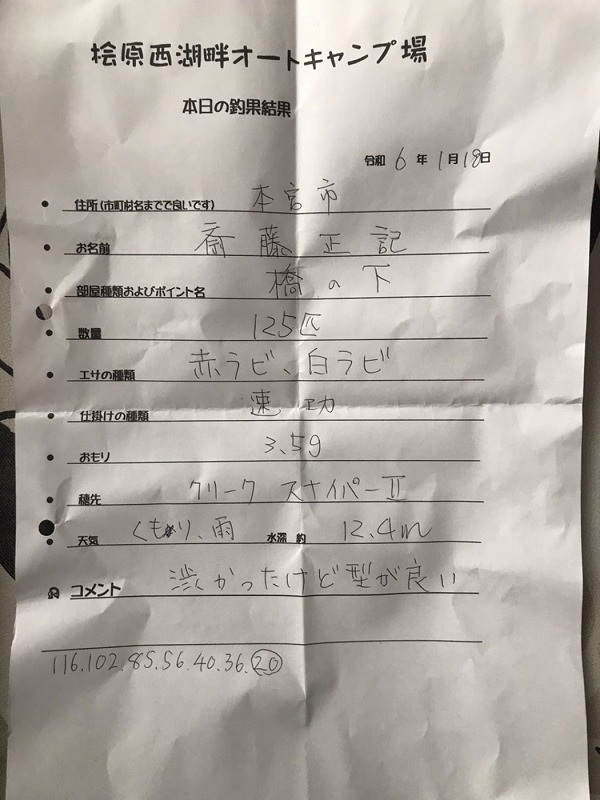 桧原西湖畔オートキャンプ場
本日の釣果結果
令和 6 年 1月 18日
住所(市町村名までで良いです) 本宮市
お名前 斎藤 正記
部屋種類およびポイント名 橋の下
数量 125匹
エサの種類 赤ラビ、白ラビ
仕掛けの種類 速功
おもり 3.5g
穂先 クリーク スナイパーⅡ
天気 くもり、雨 水深 約 12.4m
コメント 渋かったけど型が良い
116.102.85.56.40.36.20